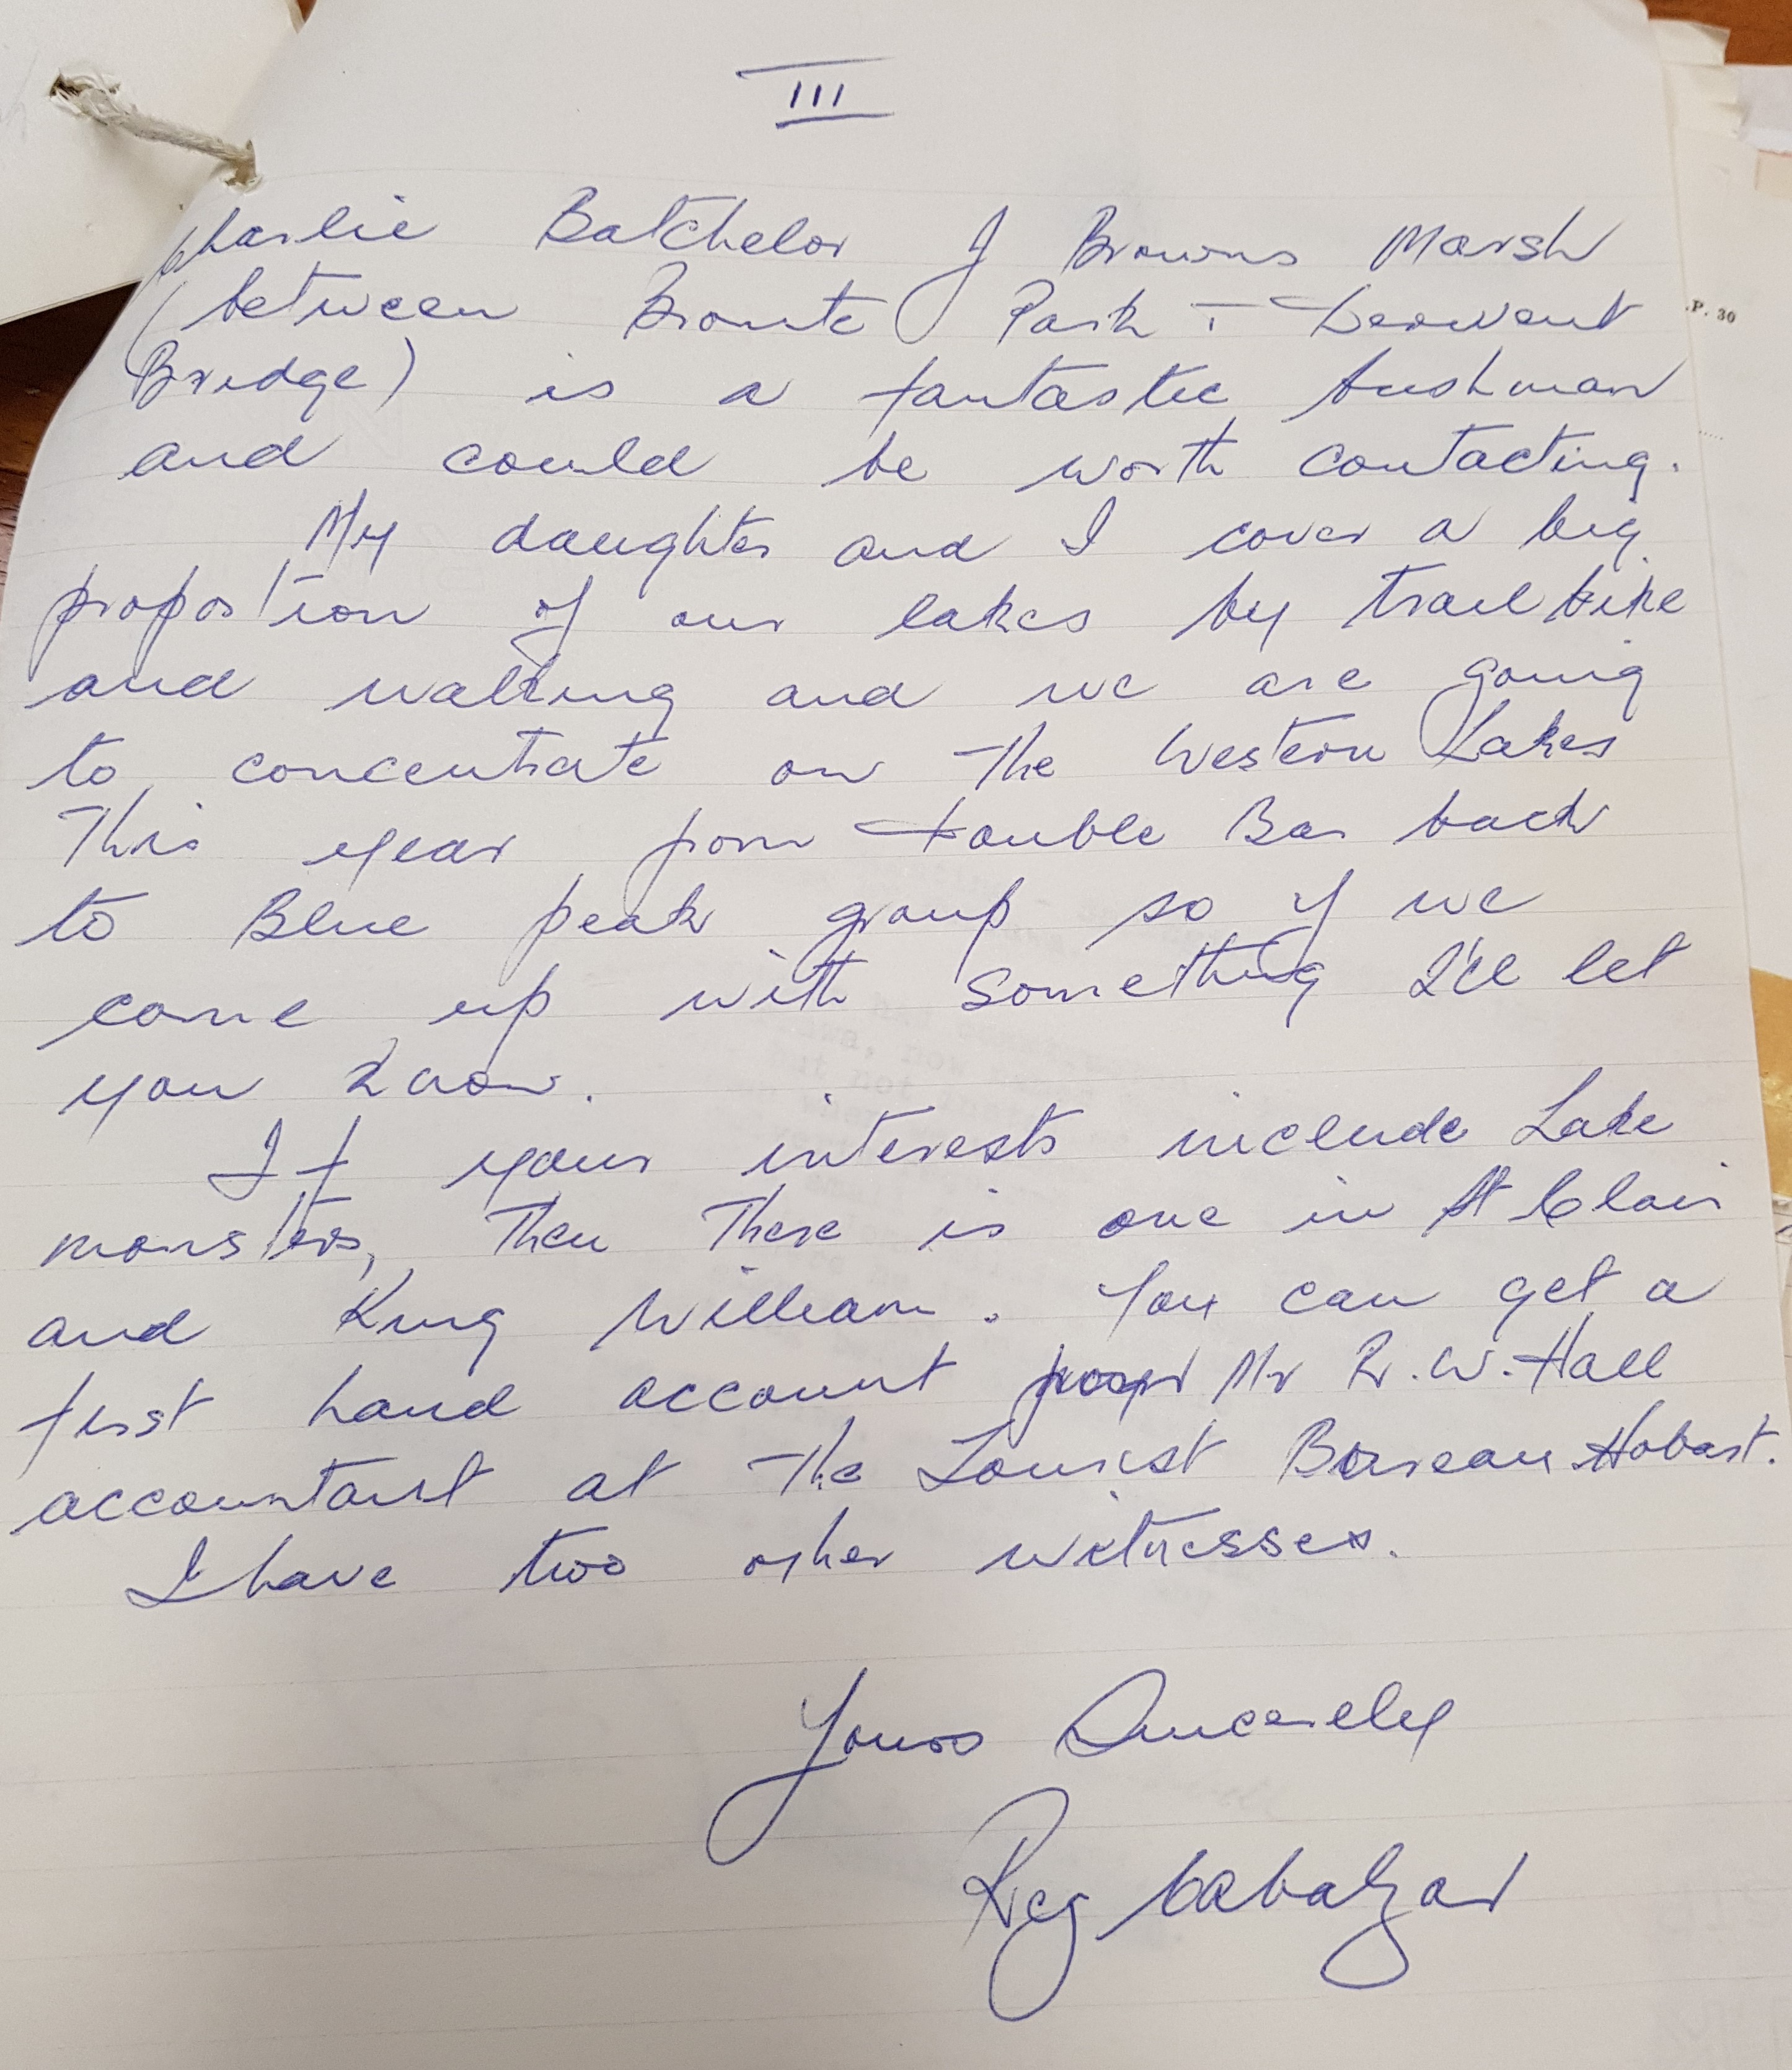 III
Charlie Batchelor of Browns Marsh
(between Bronte Park + Derwent
Bridge) is a fantastic bushman
and could be worth contacting.
My daughter and I cover a big
proportion of our lakes by trail bike
and walking and we are going
to concentrate on the Western Lakes
this year from Double Bar back
to Blue peak group so if we
come up with something I'll let
you know.
If your interests include Lake
monsters, then there is one in St Clair
and King William. You can get a
first hand account from Mr R.W. Hall
accountant at the Tourist Bureau Hobart.
I have two other witnesses.
Yours Sincerely
Reg
.P. 30